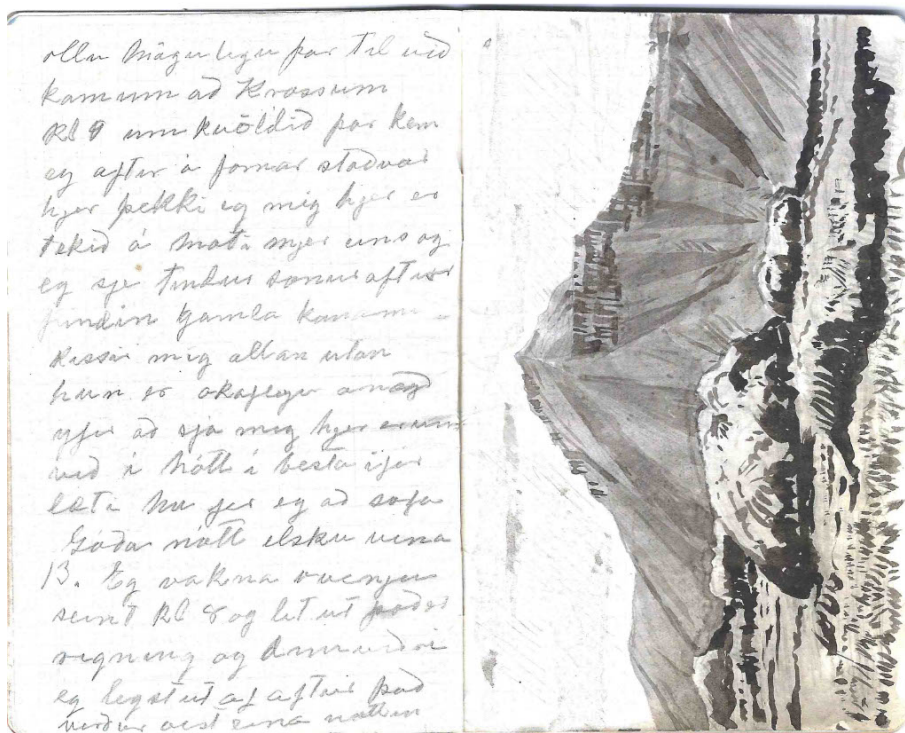 ollu mögulegu þar til við
komum að Krossum
Kl 9 um kvöldið þar kem
eg aftur á fornar stöðvar
hjer þekki eg mig hjer er
tekið á móti mjer eins og
eg sje tíndur sonur aftur
fundin Gamla konan
kissir mig allan utan
hun er ákaflega ánægð
yfir að sjá mig hjer erum
við í nótt í besta ifir
læti nu fer eg að sofa
Góða nótt elsku vina
13. Eg vakna venju
seint Kl 8 og lit ut það er
rigning og dimmviðri
eg legst út af aftur það
verður víst eina nóttin